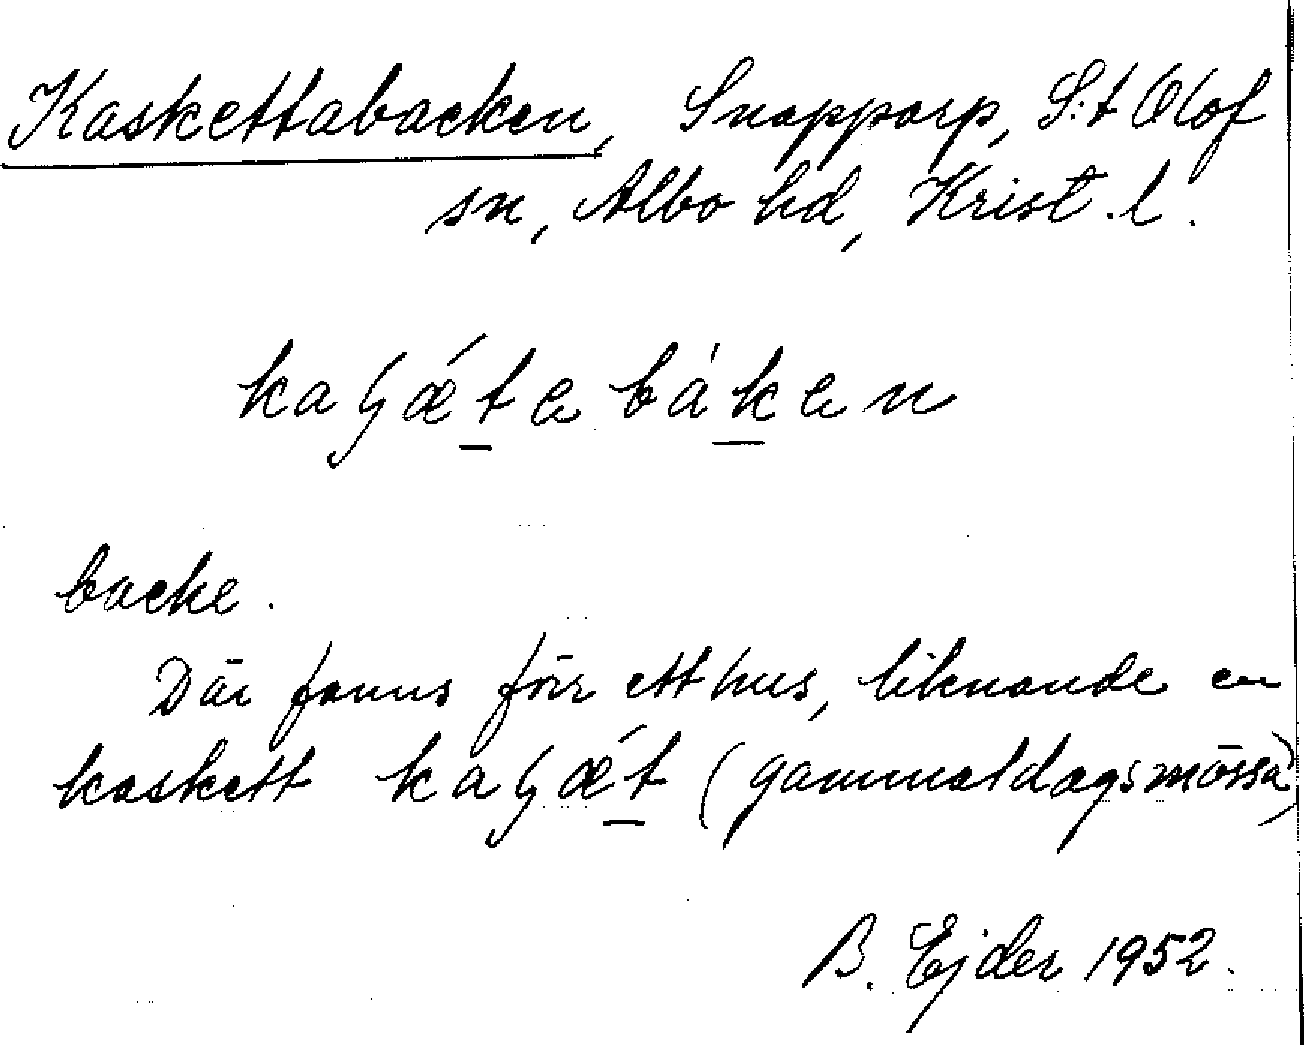 Kaskettabacken, Snapparp, S:t Olof
sn, Albo hd, Krist. l.
kaʂǽte bák en
backe.
Där fanns förr ett hus, liknande en
kaskett kaʂǽt (gammaldagsmössa)
B. Ejder 1952.